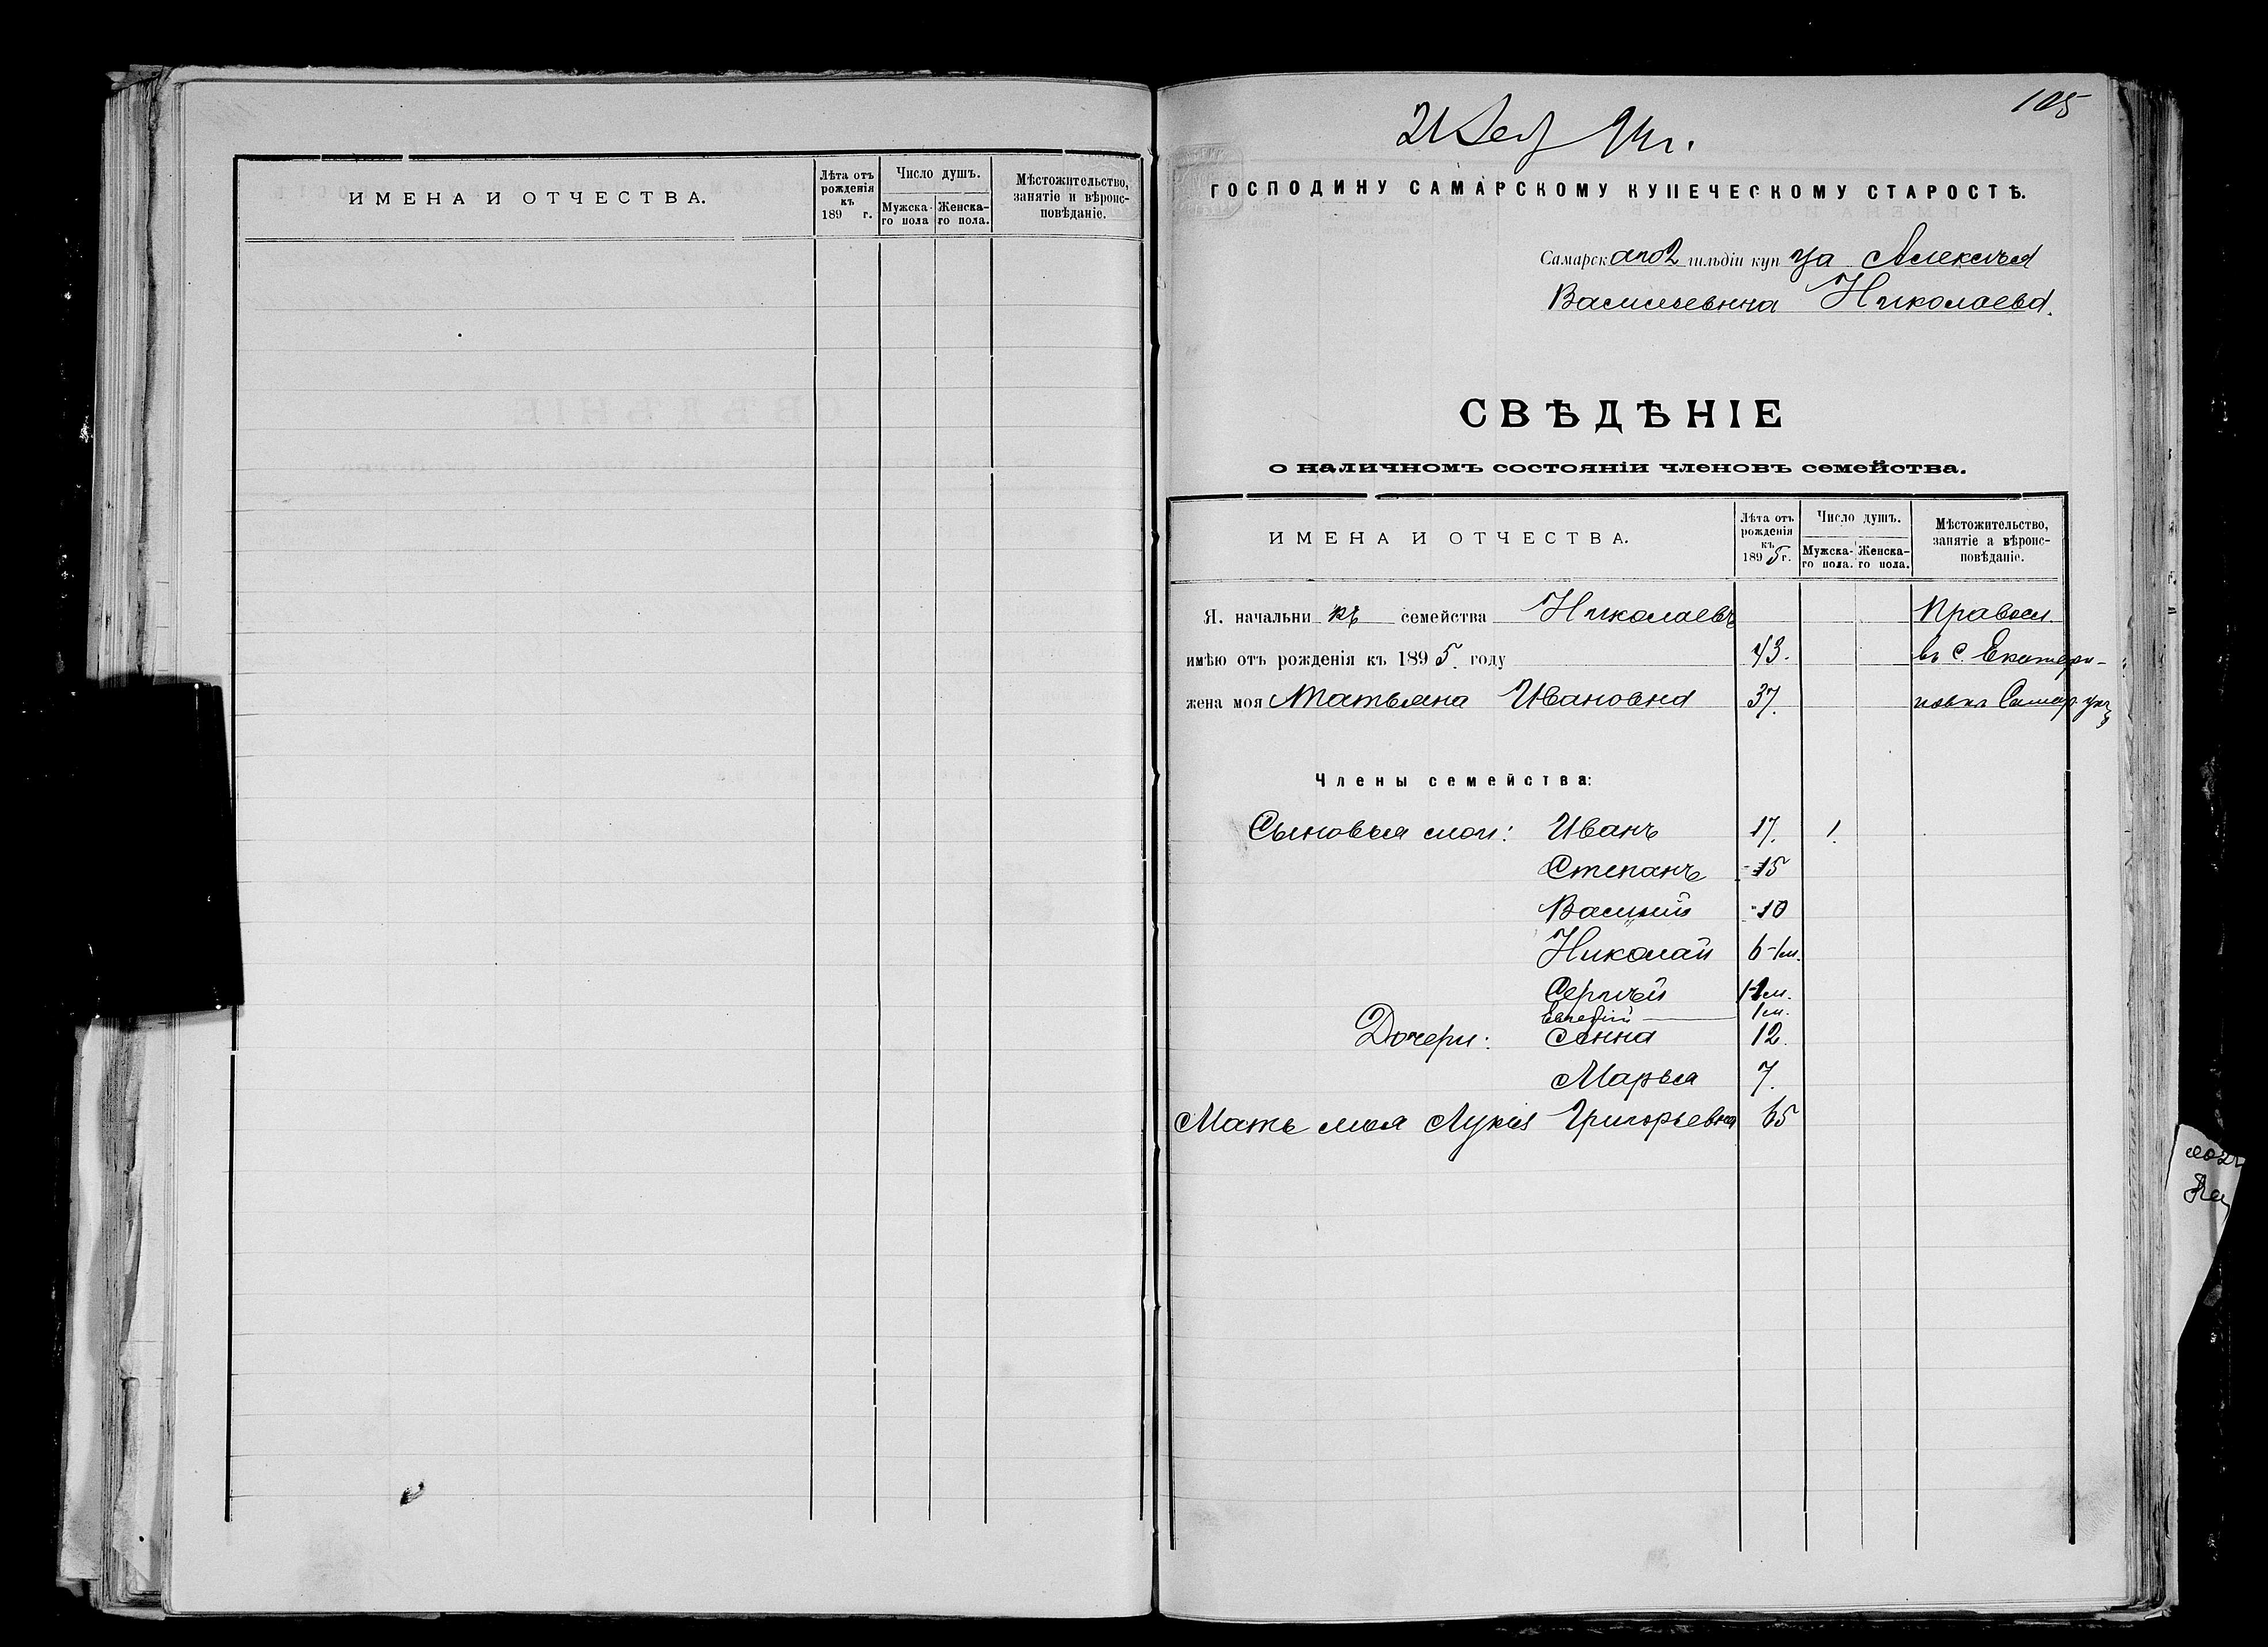 ИМЕНА И ОТЧЕСТВА.
Лѣта отъ рожденія къ 189 г.
Число душъ.
Мужска-го пола
Женска-го пола.
Мѣстожительство, занятіе и вѣроис-повѣданіе.
105
21 Дек 94 г.
ГОСПОДИНУ САМАРСКОМУ КУПЕЧЕСКОМУ СТАРОСТѢ.
Самарскаго 2 гильдіи купца Алексѣя
Васильевича Николаева.
СВѢДѢНІЕ
о наличномъ состояніи членовъ семейства.
ИМЕНА И ОТЧЕСТВА.
Лѣта отъ рожденія къ 1895 г.
Число душъ.
Мужска-го пола.
Женска-го пола.
Мѣстожительство, занятіе а вѣроис-повѣданіе.
Я. начальникъ семейства Николаевъ Правосл.
имѣю отъ рожденія къ 1895. году 43. въ с. Екатери-
жена моя Татьяна Ивановна 37. новкѣ Самар. уѣз
Члены семейства:
Сыновья мои: Иванъ 17. 1.
Степанъ 15
Василій 10
Николай 6-1м.
Сергѣй 1-1м.
1м.
Дочери: Анна 12.
Марья 7.
Мать моя Лукія Григорьевна 65